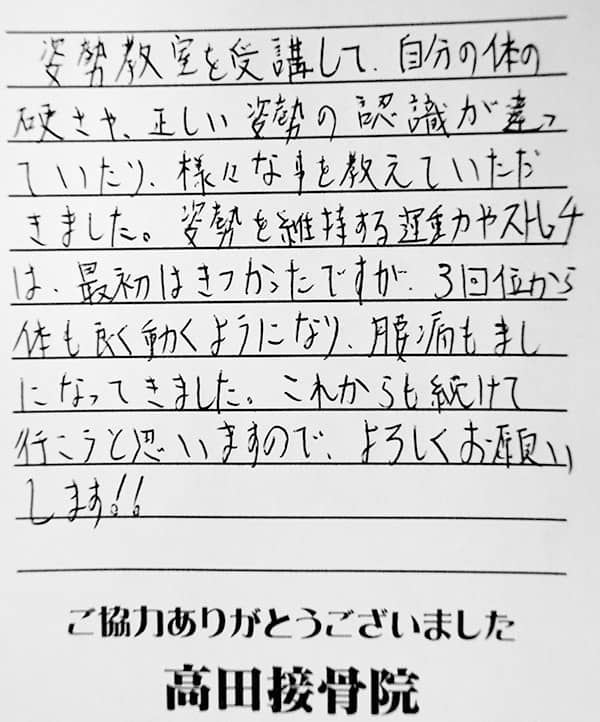 姿勢教室を受講して、自分の体の
硬さや、正しい姿勢の認識が違っ
ていたり、様々な事を教えていただ
きました。姿勢を維持する運動やストレッチ
は、最初はきつかったですが、3回位から
体も良く動くようになり、腰痛もまし
になってきました。これからも続けて
行こうと思いますので、よろしくお願い
します!!
ご協力ありがとうございました
高田接骨院